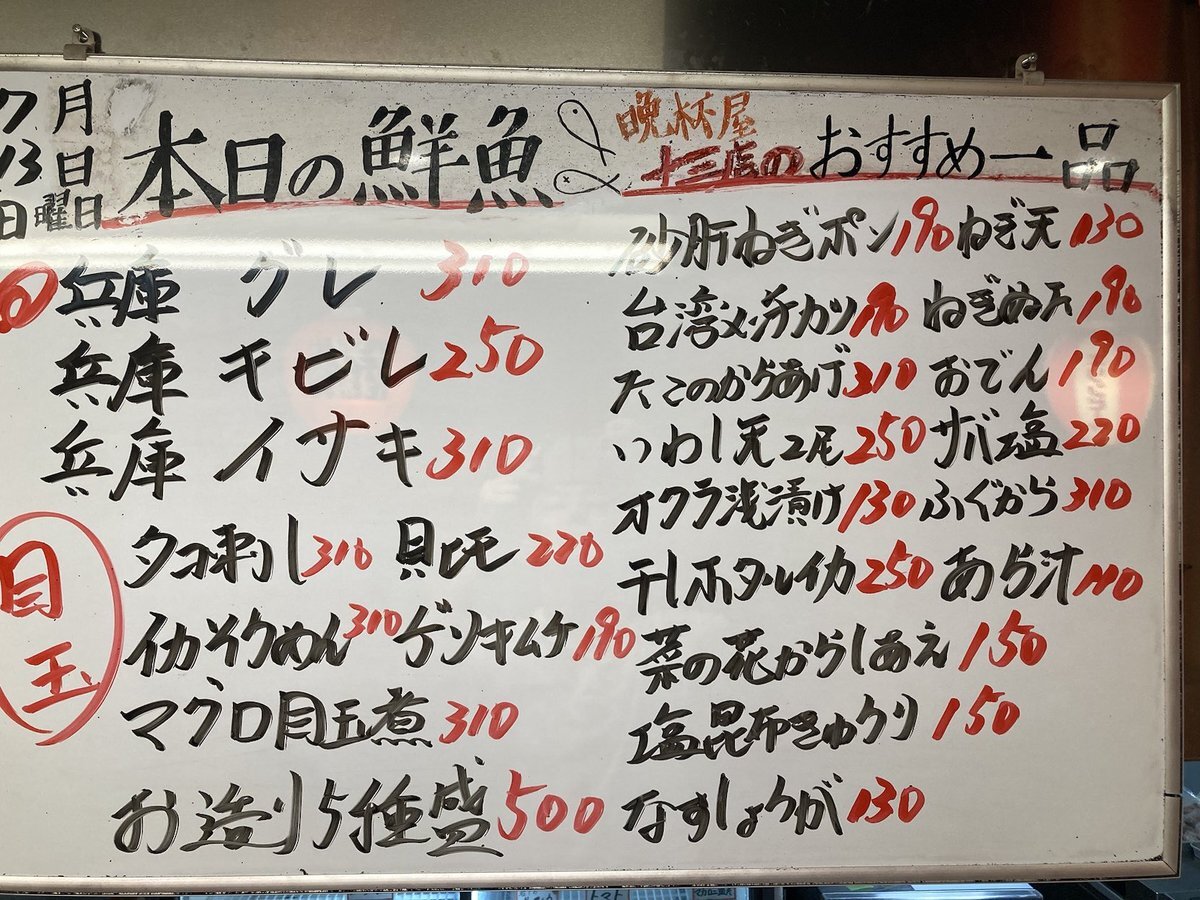 7月
13日
日曜日
本日の鮮魚
兵庫 グレ 310
兵庫 キビレ 250
兵庫 イサキ 310
目玉
タコ刺し 310 貝ヒモ 220
イカそうめん 310 ゲソキムチ 190
マグロ目玉煮 310
お造り5種盛 500
晩杯屋
十三店の おすすめ一品
砂肝ねぎポン 190 ねぎ天 130
台湾メンチカツ 190 ねぎぬた 190
大このからあげ 310 おでん 190
いわし天2尾 250 サバ塩 220
オクラ浅漬け 130 ふぐから 310
干しホタルイカ 250 あら汁 110
菜の花からしあえ 150
塩昆布きゅうり 150
なすしょうが 130